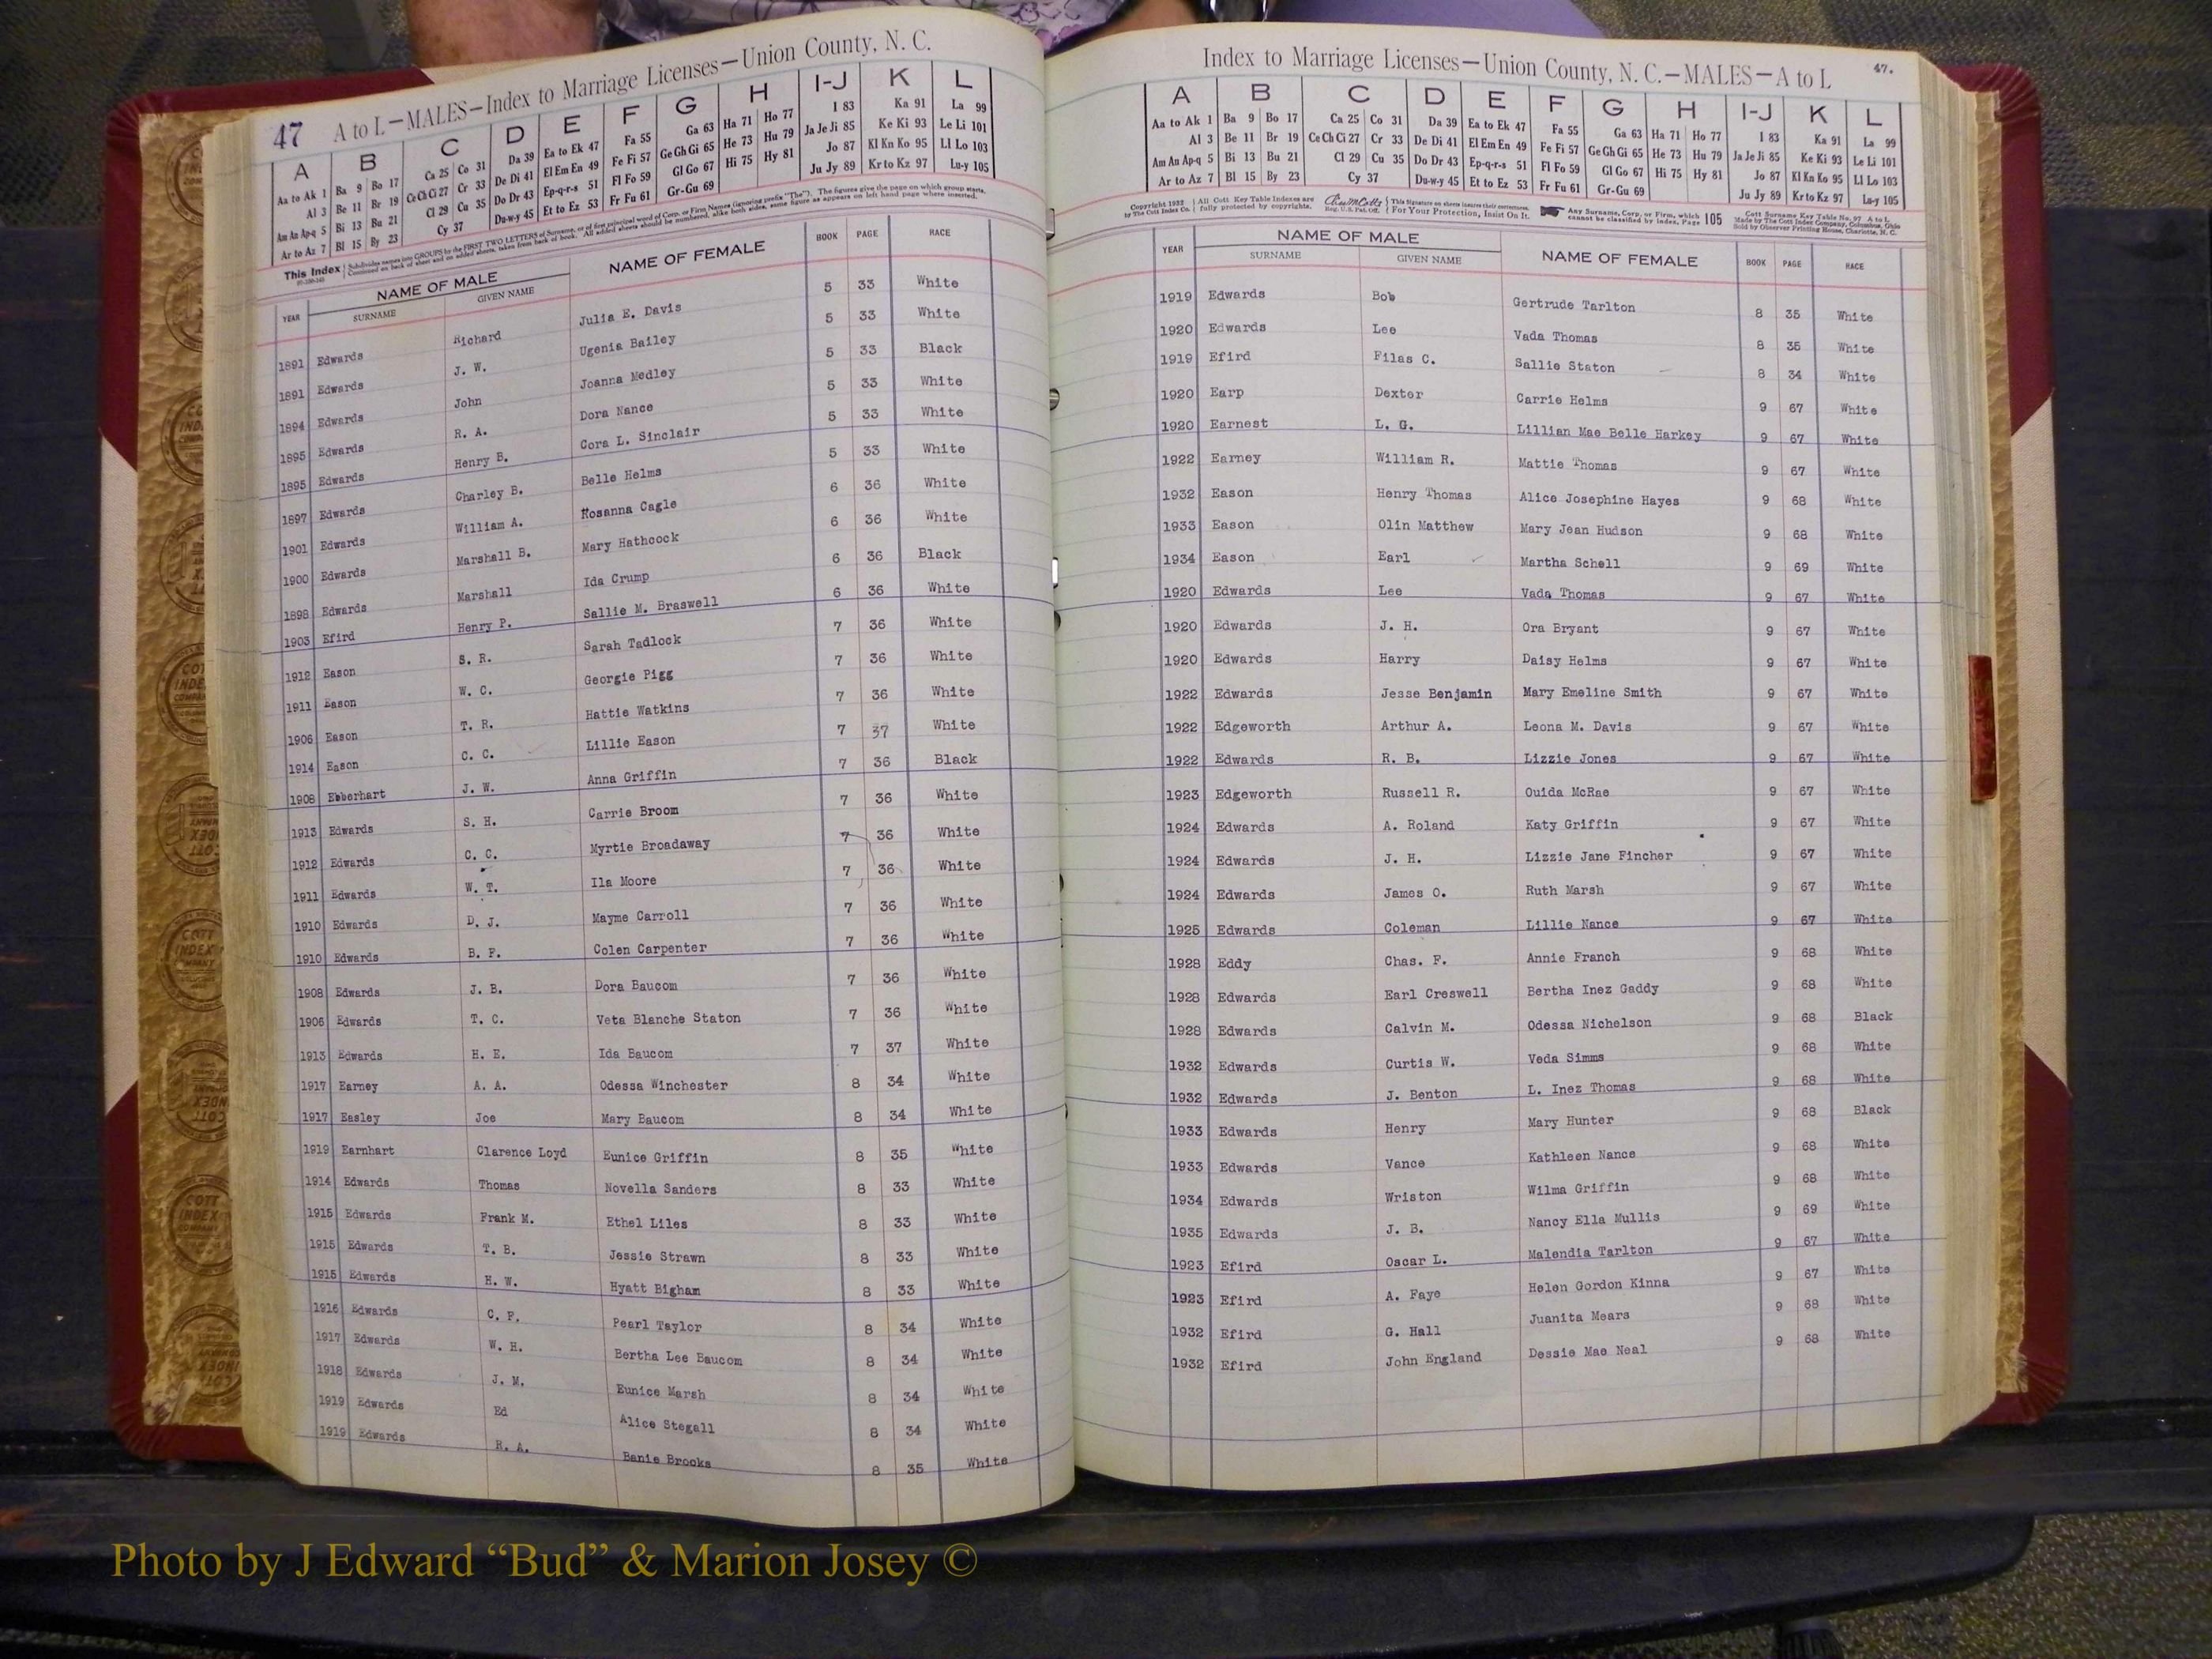 47 A to L—MALES—Index to Marriage Licenses—Union County, N. C.
A B C D E F G H I-J K L
Aa to Ak 1 Ba 9 Bo 17 Ca 25 Co 31 Da 39 Ea to Ek 47 Fa 55 Ga 63 Ha 71 Ho 77 I 83 Ka 91 La 99
Al 3 Be 11 Br 19 Ce Ch Ci 27 Cr 33 De Di 41 El Em En 49 Fe Fi 57 Ge Gh Gi 65 He 73 Hu 79 Ja Je Ji 85 Ke Ki 93 Le Li 101
Am An Ap-q 5 Bi 13 Bu 21 Cl 29 Cu 35 Do Dr 43 Ep-q-r-s 51 Fl Fo 59 Gl Go 67 Hi 75 Hy 81 Jo 87 Kl Kn Ko 95 Ll Lo 103
Ar to Az 7 Bl 15 By 23 Cy 37 Du-w-y 45 Et to Ez 53 Fr Fu 61 Gr-Gu 69 Ju Jy 89 Kr to Kz 97 Lu-y 105
This Index Subdivides names into GROUPS by the FIRST TWO LETTERS of Surname, or of first principal word of Corp. or Firm Names (ignoring prefix "The"). The figures give the page on which group starts.
Continued on back of sheet and on added sheets, taken from back of book. All added sheets should be numbered, alike both sides, same figure as appears on left hand page where inserted.
YEAR NAME OF MALE SURNAME GIVEN NAME NAME OF FEMALE BOOK PAGE RACE
1891 Edwards Richard Julia E. Davis 5 33 White
1891 Edwards J. W. Ugenia Bailey 5 33 White
1894 Edwards John Joanna Medley 5 33 Black
1895 Edwards R. A. Dora Nance 5 33 White
1895 Edwards Henry B. Cora L. Sinclair 5 33 White
1897 Edwards Charley B. Belle Helms 5 33 White
1901 Edwards William A. Rosanna Cagle 6 36 White
1900 Edwards Marshall B. Mary Hathcock 6 36 White
1898 Edwards Marshall Ida Crump 6 36 Black
1903 Efird Henry P. Sallie M. Braswell 6 36 White
1912 Eason S. R. Sarah Tadlock 7 36 White
1911 Eason W. C. Georgie Pigg 7 36 White
1906 Eason T. R. Hattie Watkins 7 36 White
1914 Eason C. C. Lillie Eason 7 37 White
1908 Ebberhart J. W. Anna Griffin 7 36 Black
1913 Edwards S. H. Carrie Broom 7 36 White
1912 Edwards C. C. Myrtie Broadaway 7 36 White
1911 Edwards W. T. Ila Moore 7 36 White
1910 Edwards D. J. Mayme Carroll 7 36 White
1910 Edwards B. F. Colen Carpenter 7 36 White
1908 Edwards J. B. Dora Baucom 7 36 White
1906 Edwards T. C. Veta Blanche Staton 7 36 White
1913 Edwards H. E. Ida Baucom 7 37 White
1917 Earney A. A. Odessa Winchester 8 34 White
1917 Easley Joe Mary Baucom 8 34 White
1919 Earnhart Clarence Loyd Eunice Griffin 8 35 White
1914 Edwards Thomas Novella Sanders 8 33 White
1915 Edwards Frank M. Ethel Liles 8 33 White
1915 Edwards T. B. Jessie Strawn 8 33 White
1915 Edwards H. W. Hyatt Bigham 8 33 White
1916 Edwards C. F. Pearl Taylor 8 34 White
1917 Edwards W. H. Bertha Lee Baucom 8 34 White
1918 Edwards J. M. Eunice Marsh 8 34 White
1919 Edwards Ed Alice Stegall 8 34 White
1919 Edwards R. A. Banie Brooks 8 35 White
Index to Marriage Licenses—Union County, N. C.—MALES—A to L 47.
A B C D E F G H I-J K L
Aa to Ak 1 Ba 9 Bo 17 Ca 25 Co 31 Da 39 Ea to Ek 47 Fa 55 Ga 63 Ha 71 Ho 77 I 83 Ka 91 La 99
Al 3 Be 11 Br 19 Ce Ch Ci 27 Cr 33 De Di 41 El Em En 49 Fe Fi 57 Ge Gh Gi 65 He 73 Hu 79 Ja Je Ji 85 Ke Ki 93 Le Li 101
Am An Ap-q 5 Bi 13 Bu 21 Cl 29 Cu 35 Do Dr 43 Ep-q-r-s 51 Fl Fo 59 Gl Go 67 Hi 75 Hy 81 Jo 87 Kl Kn Ko 95 Ll Lo 103
Ar to Az 7 Bl 15 By 23 Cy 37 Du-w-y 45 Et to Ez 53 Fr Fu 61 Gr-Gu 69 Ju Jy 89 Kr to Kz 97 Lu-y 105
Copyright 1922 by The Cott Index Co. All Cott Key Table Indexes are fully protected by copyrights. Reg. U.S. Pat. Off. This Signature on sheets insures their correctness. For Your Protection, Insist On It. Any Surname, Corp. or Firm, which cannot be classified by index, Page 105 Cott Surname Key Table No. 97 A to L Made by The Cott Index Company, Columbus, Ohio Sold by Observer Printing House, Charlotte, N. C.
YEAR NAME OF MALE SURNAME GIVEN NAME NAME OF FEMALE BOOK PAGE RACE
1919 Edwards Bob Gertrude Tarlton 8 35 White
1920 Edwards Lee Vada Thomas 8 35 White
1919 Efird Filas C. Sallie Staton 8 34 White
1920 Earp Dexter Carrie Helms 9 67 White
1920 Earnest L. G. Lillian Mae Belle Harkey 9 67 White
1922 Earney William R. Mattie Thomas 9 67 White
1932 Eason Henry Thomas Alice Josephine Hayes 9 68 White
1933 Eason Olin Matthew Mary Jean Hudson 9 68 White
1934 Eason Earl Martha Schell 9 69 White
1920 Edwards Lee Vada Thomas 9 67 White
1920 Edwards J. H. Ora Bryant 9 67 White
1920 Edwards Harry Daisy Helms 9 67 White
1922 Edwards Jesse Benjamin Mary Emeline Smith 9 67 White
1922 Edgeworth Arthur A. Leona M. Davis 9 67 White
1922 Edwards R. B. Lizzie Jones 9 67 White
1923 Edgeworth Russell R. Ouida McRae 9 67 White
1924 Edwards A. Roland Katy Griffin 9 67 White
1924 Edwards J. H. Lizzie Jane Fincher 9 67 White
1924 Edwards James O. Ruth Marsh 9 67 White
1925 Edwards Coleman Lillie Nance 9 67 White
1928 Eddy Chas. F. Annie Franch 9 68 White
1928 Edwards Earl Creswell Bertha Inez Gaddy 9 68 White
1928 Edwards Calvin M. Odessa Nichelson 9 68 Black
1932 Edwards Curtis W. Veda Simms 9 68 White
1932 Edwards J. Benton L. Inez Thomas 9 68 White
1933 Edwards Henry Mary Hunter 9 68 Black
1933 Edwards Vance Kathleen Nance 9 68 White
1934 Edwards Wriston Wilma Griffin 9 68 White
1935 Edwards J. B. Nancy Ella Mullis 9 69 White
1923 Efird Oscar L. Malendia Tarlton 9 67 White
1923 Efird A. Faye Helen Gordon Kinna 9 67 White
1932 Efird G. Hall Juanita Mears 9 68 White
1932 Efird John England Dessie Mae Neal 9 68 White
Photo by J Edward “Bud” & Marion Josey ©